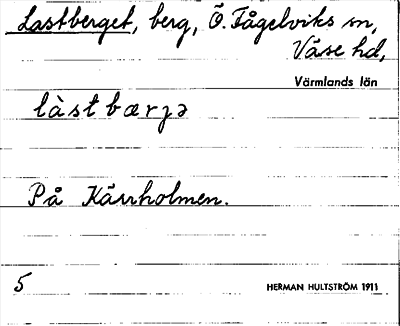 Lastberget, berg, Ö. Fågelviks sn,
Väse hd,
Värmlands län
làstbærjə
På Kärrholmen.
5
HERMAN HULTSTRÖM 1911